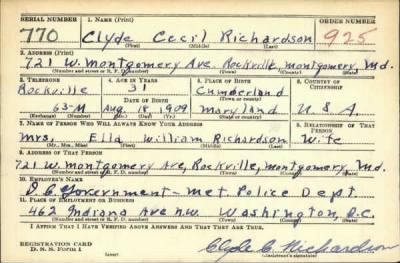 SERIAL NUMBER 1. NAME (Print) ORDER NUMBER
770 Clyde Cecil Richardson 925
(First) (Middle) (Last)
2. ADDRESS (Print)
721 W. Montgomery Ave. Rockville, Montgomery, Md.
(Number and street or R. F. D. number) (Town) (County) (State)
3. TELEPHONE 4. AGE IN YEARS 5. PLACE OF BIRTH 6. COUNTRY OF CITIZENSHIP
Rockville 31 Cumberland
DATE OF BIRTH (Town or county)
63-M Aug. 18, 1909 Maryland U.S.A
(Exchange) (Number) (Mo.) (Day) (Yr.) (State or country)
7. NAME OF PERSON WHO WILL ALWAYS KNOW YOUR ADDRESS 8. RELATIONSHIP OF THAT PERSON
Mrs. Ella William Richardson Wife
(Mr., Mrs., Miss) (First) (Middle) (Last)
9. ADDRESS OF THAT PERSON
721 W. Montgomery Ave, Rockville, Montgomery, Md.
(Number and street or R. F. D. number) (Town) (County) (State)
10. EMPLOYER'S NAME
D.C. Government - Met Police Dept.
11. PLACE OF EMPLOYMENT OR BUSINESS
462 Indiana Ave N.W. Washington, D.C.
(Number and street or R. F. D. number) (Town) (County) (State)
I AFFIRM THAT I HAVE VERIFIED ABOVE ANSWERS AND THAT THEY ARE TRUE.
REGISTRATION CARD
D. S. S. Form 1 Clyde C Richardson
(Registrant's signature)